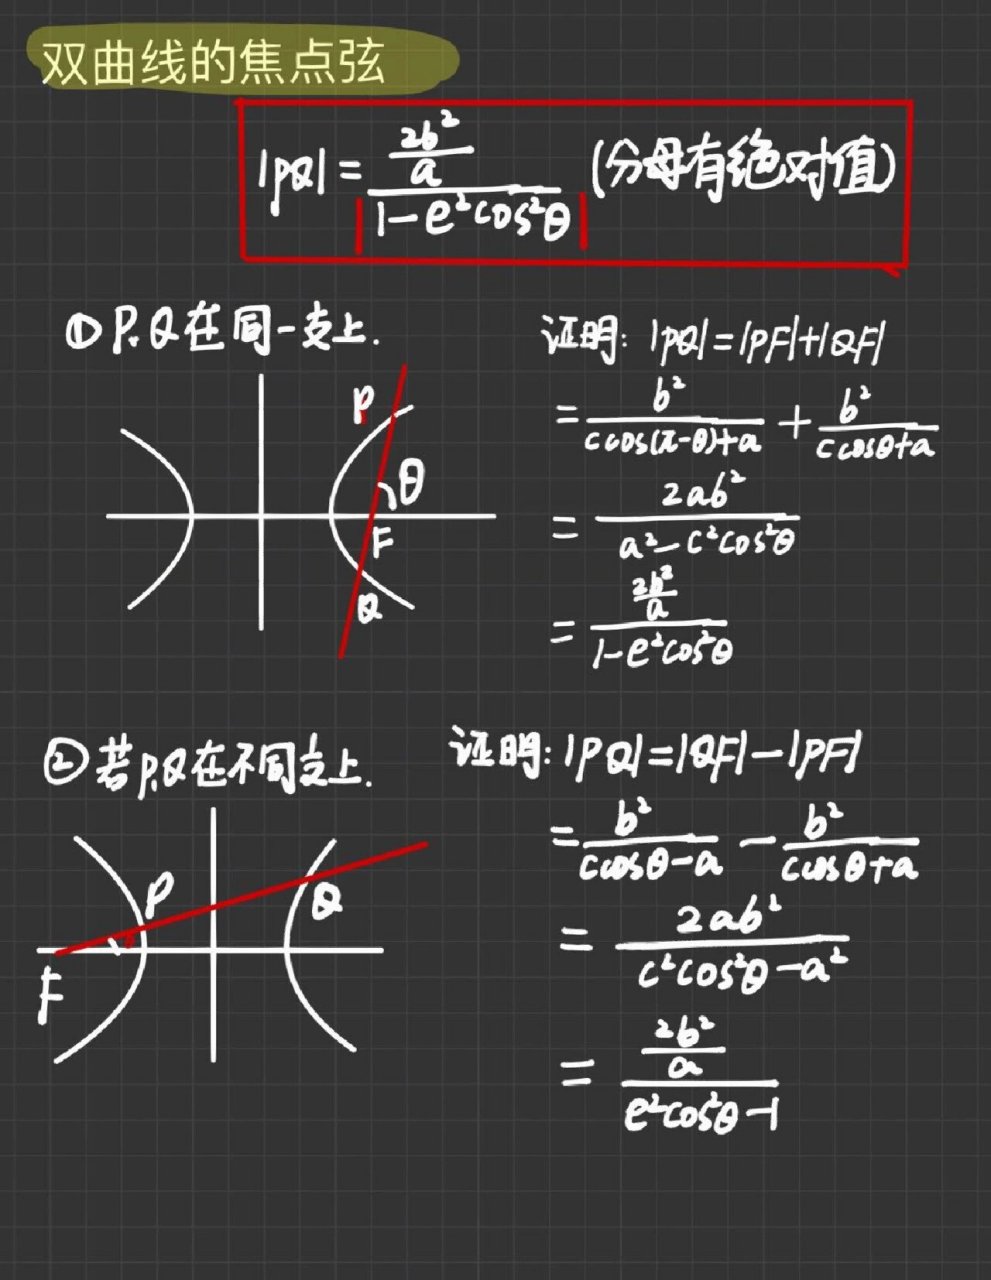 双曲线的焦点弦
|PQ| = (2b²/a) / |1-e²cos²θ| (分母有绝对值)
①P.Q在同一支上.
P
θ
F
Q
证明: |PQ|=|PF|+|QF|
= b²/(ccos(π-θ)+a) + b²/(ccosθ+a)
= 2ab²/(a²-c²cos²θ)
= (2b²/a)/(1-e²cos²θ)
②若P.Q在不同支上.
P
Q
F
证明: |PQ|=|QF|-|PF|
= b²/(ccosθ-a) - b²/(ccosθ+a)
= 2ab²/(c²cos²θ-a²)
= (2b²/a)/(e²cos²θ-1)